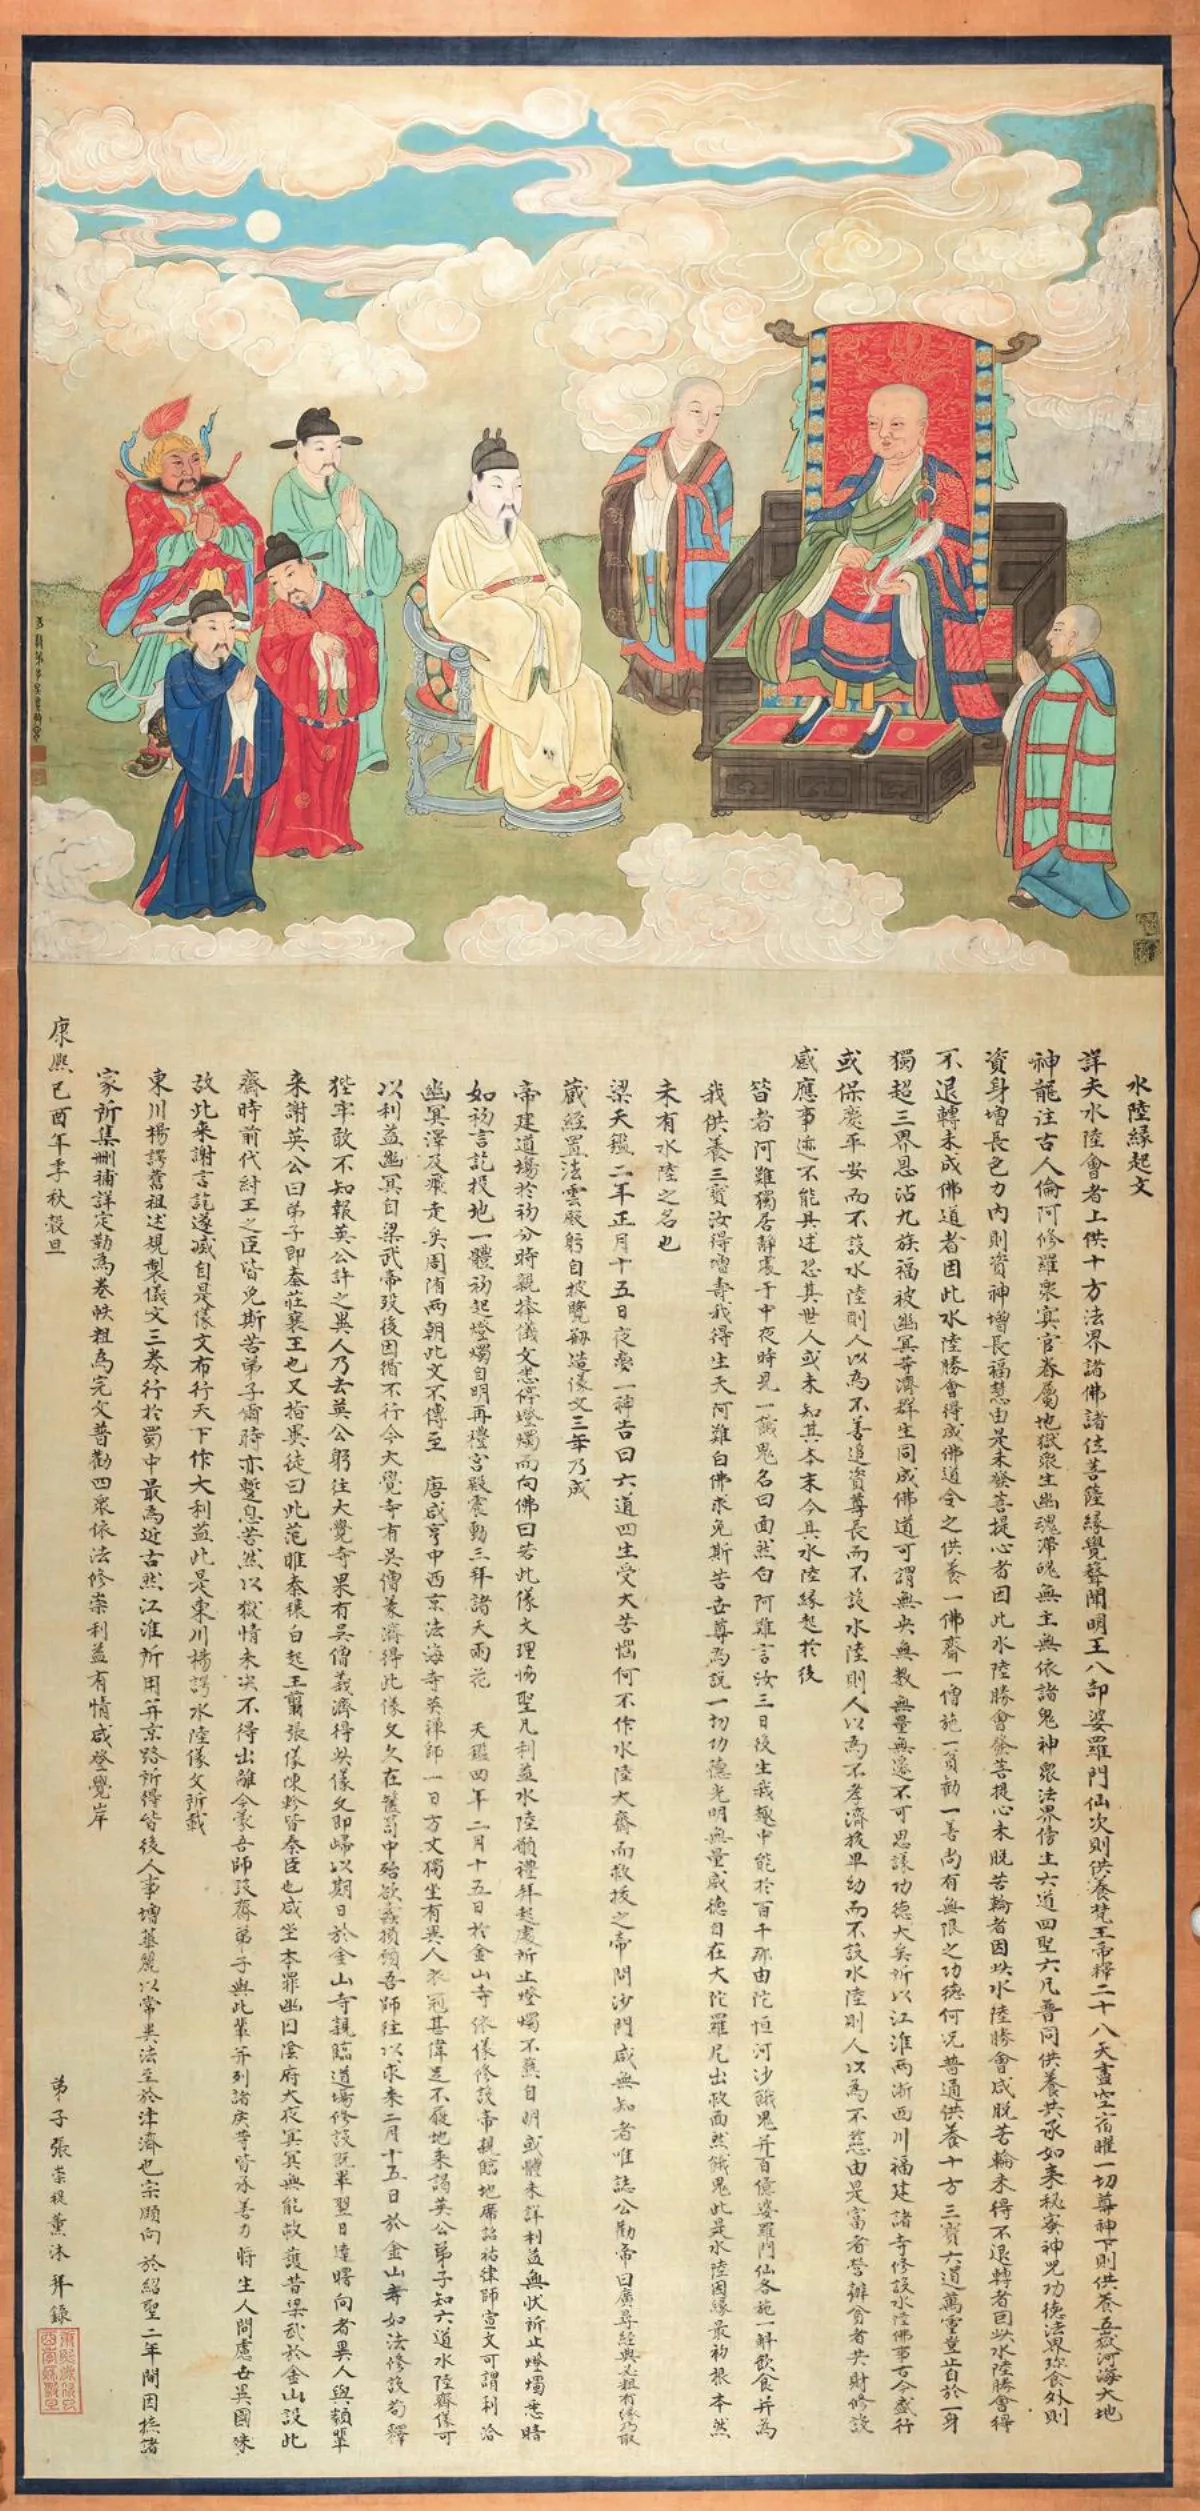 水陸緣起文
詳夫水陸會者上供十方法界諸佛諸位菩薩緣覺聲聞明王八部婆羅門仙次則供養梵王帝釋二十八天盡空宿曜一切尊神下則供養五嶽河海大地
神龍往古人倫阿修羅眾冥官眷屬地獄眾生幽魂滯魄無主無依諸鬼神眾法界傍生六道四聖六凡普同供養共承如來秘密神咒功德法界珎食外則
資身增長色力內則資神增長福慧由是未發菩提心者因此水陸勝會發菩提心未脫苦輪者因此水陸勝會咸脫苦輪未得不退轉者因此水陸勝會得
不退轉未成佛道者因此水陸勝會得成佛道令之供養一佛齋一僧施一貧勸一善尚有無限之功德何況普通供養十方三寶六道萬靈豈止自於一身
獨超三界恩沾九族福被幽冥等濟群生同成佛道可謂無央無數無量無邊不可思議功德大矣所以江淮兩浙西川福建諸寺修設水陸佛事古今盛行
或保慶平安而不設水陸則人以為不善追資尊長而不設水陸則人以為不孝濟拔卑幼而不設水陸則人以為不慈由是富者營辦貧者共財修設
感應事迹不能具述恐其世人或未知其本末今具水陸緣起於後
昔者阿難獨居靜處于中夜時見一餓鬼名曰面然白阿難言汝三日後生我趣中能於百千那由陀恒河沙餓鬼并百億婆羅門仙各施一斛飲食并為
我供養三寶汝得增壽我得生天阿難白佛求免斯苦世尊為說一切功德光明無量威德自在大陀羅尼出救面然餓鬼此是水陸因緣最初根本然
未有水陸之名也
梁天鑑二年正月十五日夜夢一神告曰六道四生受大苦惱何不作水陸大齋而救拔之帝問沙門咸無知者唯誌公勸帝曰廣尋經典必有緣乃取
藏經置法雲殿躬自披覽刱造儀文三年乃成
帝建道場於初分時親捧儀文悉停燈燭而向佛曰若此儀文理協聖凡利益水陸願禮拜起處所止燈燭不爇自明或體未詳利益無狀所止燈燭悉暗
如初言訖投地一體初起燈燭自明再禮宮殿震動三拜諸天雨花 天鑑四年二月十五日於金山寺依儀修設帝親臨地席詔祐律師宣文可謂利洽
幽冥澤及飛走矣周隋兩朝此文不傳至 唐咸亨中西京法海寺英禪師一日方丈獨坐有異人衣冠甚偉足不履地來謁英公弟子知六道水陸齋儀可
以利益幽冥自梁武帝歿後因循不行今大覺寺有吳僧義濟得此儀文久在篋笥中殆欲蠹損願吾師往以求來二月十五日於金山寺如法修設苟釋
狴牢敢不知報英公許之異人乃去英公躬往大覺寺果有吳僧義濟得其儀文即歸以期日於金山寺親臨道場修設既畢翌日達曙向者異人與類輩
來謝英公曰弟子即秦莊襄王也又指異徒曰此范雎秦穰白起王翦張儀陳軫皆秦臣也咸坐本罪幽囚陰府大夜冥冥無能救護昔梁武於金山設此
齋時前代紂王之臣皆免斯苦弟子爾時亦蹔息苦然以獄情未決不得出離今蒙吾師設齋弟子與此輩并列諸庚等皆承善力將生人間慮世異國殊
故此來謝言訖遂滅自是儀文布行天下作大利益此是東川楊諤水陸儀文所載
東川楊諤舊祖述規製儀文三卷行於蜀中最為近古然江淮所用并京路所得皆後人事增華麗以常異法至於津濟也宗賾向於紹聖二年間因摭諸
家所集刪補詳定勒為卷帙粗為完文普勸四眾依法修崇利益有情咸登覺岸
康熙己酉年季秋穀旦
弟子張崇禔薰沐拜錄